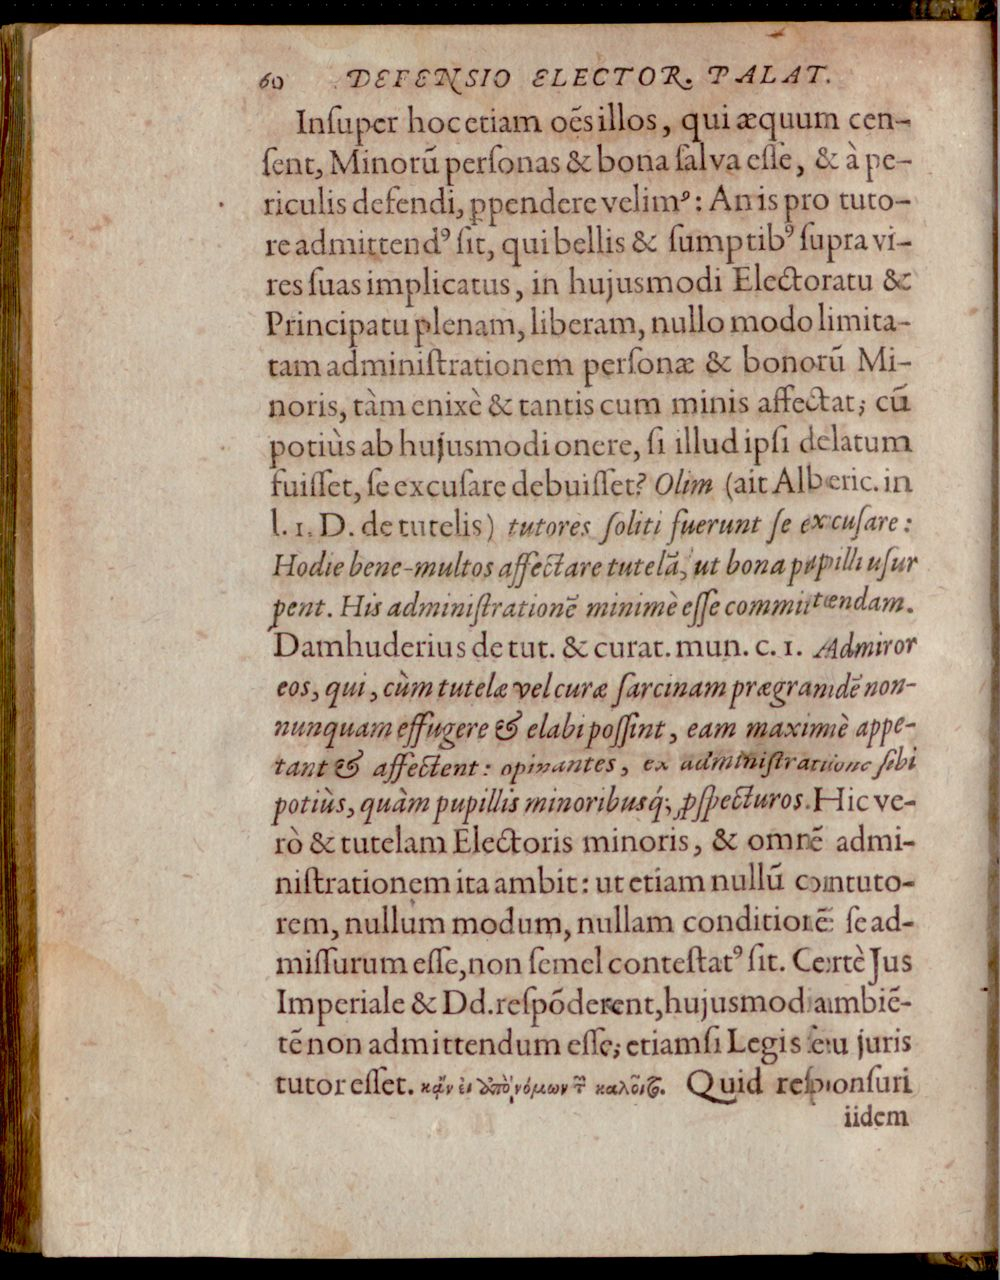 60 DEFENSIO ELECTOR. PALAT.
Inſuper hoc etiam oēs illos, qui æquum cen-
ſent, Minorū perſonas & bona ſalva eſſe, & à pe-
riculis defendi, ꝓpendere velimꝰ: An is pro tuto-
re admittendꝰ ſit, qui bellis & ſumptibꝰ ſupra vi-
res ſuas implicatus, in hujusmodi Electoratu &
Principatu plenam, liberam, nullo modo limita-
tam adminiſtrationem perſonæ & bonorū Mi-
noris, tàm enixè & tantis cum minis affectat; cū
potiùs ab hujusmodi onere, ſi illud ipſi delatum
fuiſſet, ſe excuſare debuiſſet? Olim (ait Alberic. in
l. 1. D. de tutelis) tutores ſoliti fuerunt ſe excuſare:
Hodie bene-multos affectare tutelā, ut bona pupilli uſur
pent. His adminiſtrationē minimè eſſe committendam.
Damhuderius de tut. & curat. mun. c. 1. Admiror
eos, qui, cùm tutelæ vel curæ ſarcinam prægrandē non-
nunquam effugere & elabi poſſint, eam maximè appe-
tant & affectent: opinantes, ex adminiſtratione ſibi
potiùs, quàm pupillis minoribusq́;, ꝓſpecturos. Hic ve-
rò & tutelam Electoris minoris, & omnē admi-
niſtrationem ita ambit: ut etiam nullū contuto-
rem, nullum modum, nullam conditionē ſe ad-
miſſurum eſſe, non ſemel conteſtatꝰ ſit. Certè Jus
Imperiale & Dd. reſpōderent, hujusmodi ambiē-
tē non admittendum eſſe; etiamſi Legis ſeu juris
tutor eſſet. κἂν εἰ νόμων Quid reſponſuri
iidem